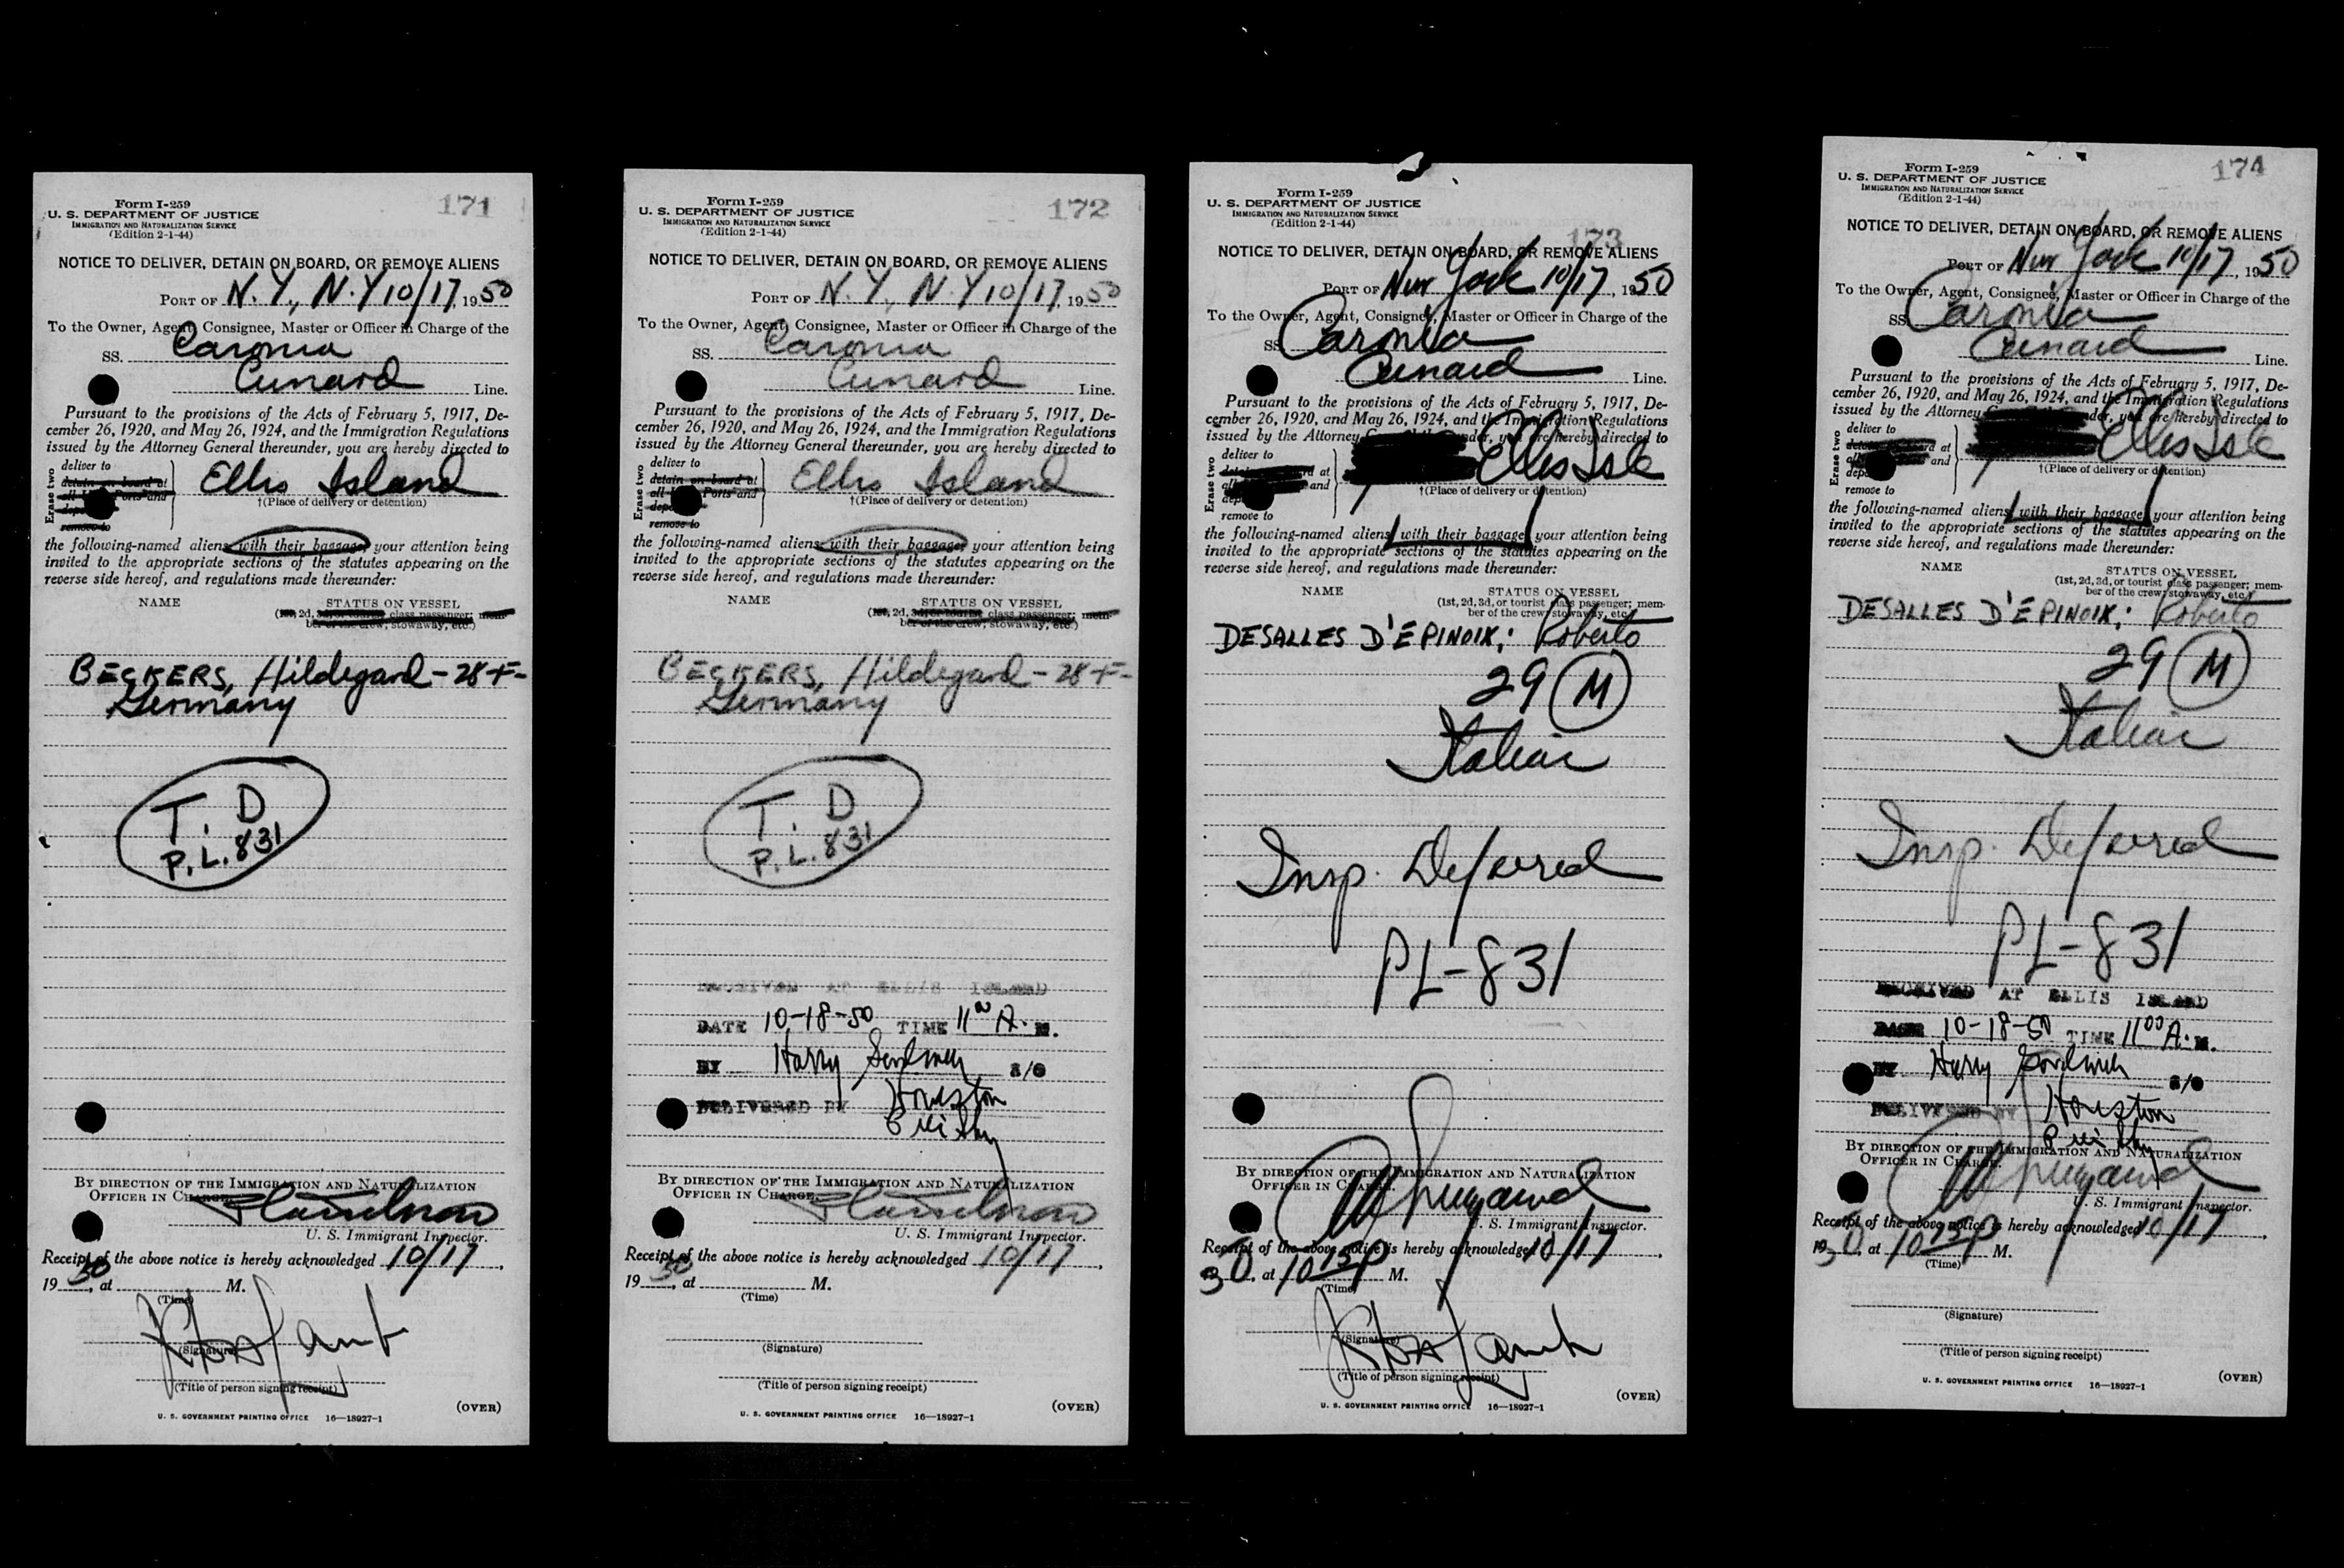 171
Form I-259
U. S. DEPARTMENT OF JUSTICE
IMMIGRATION AND NATURALIZATION SERVICE
(Edition 2-1-44)
NOTICE TO DELIVER, DETAIN ON BOARD, OR REMOVE ALIENS
PORT OF N.Y., N.Y 10/17, 1950
To the Owner, Agent, Consignee, Master or Officer in Charge of the
SS. Caronia
Cunard Line.
Pursuant to the provisions of the Acts of February 5, 1917, De-
cember 26, 1920, and May 26, 1924, and the Immigration Regulations
issued by the Attorney General thereunder, you are hereby directed to
Erase two
deliver to
detain on board at
all Ports and
remove to
Ellis Island
†(Place of delivery or detention)
the following-named aliens with their baggage, your attention being
invited to the appropriate sections of the statutes appearing on the
reverse side hereof, and regulations made thereunder:
NAME
STATUS ON VESSEL
(1st, 2d, 3d, or tourist class passenger; mem-
ber of the crew; stowaway, etc.)
BECKERS, Hildegard - 28-F-
Germany
T. D
P.L. 831
BY DIRECTION OF THE IMMIGRATION AND NATURALIZATION
OFFICER IN CHARGE.
U. S. Immigrant Inspector.
Receipt of the above notice is hereby acknowledged 10/17,
1950, at M.
(Time)
(Signature)
(Title of person signing receipt)
(OVER)
U. S. GOVERNMENT PRINTING OFFICE 16—18927-1
172
Form I-259
U. S. DEPARTMENT OF JUSTICE
IMMIGRATION AND NATURALIZATION SERVICE
(Edition 2-1-44)
NOTICE TO DELIVER, DETAIN ON BOARD, OR REMOVE ALIENS
PORT OF N.Y., N.Y 10/17, 1950
To the Owner, Agent, Consignee, Master or Officer in Charge of the
SS. Caronia
Cunard Line.
Pursuant to the provisions of the Acts of February 5, 1917, De-
cember 26, 1920, and May 26, 1924, and the Immigration Regulations
issued by the Attorney General thereunder, you are hereby directed to
Erase two
deliver to
detain on board at
all Ports and
remove to
Ellis Island
†(Place of delivery or detention)
the following-named aliens with their baggage, your attention being
invited to the appropriate sections of the statutes appearing on the
reverse side hereof, and regulations made thereunder:
NAME
STATUS ON VESSEL
(1st, 2d, 3d, or tourist class passenger; mem-
ber of the crew; stowaway, etc.)
BECKERS, Hildegard - 28-F-
Germany
T. D
P.L. 831
RECEIVED AT ELLIS ISLAND
DATE 10-18-50 TIME 11 00 A. M.
BY Harry
DELIVERED BY Houston
BY DIRECTION OF THE IMMIGRATION AND NATURALIZATION
OFFICER IN CHARGE.
U. S. Immigrant Inspector.
Receipt of the above notice is hereby acknowledged 10/17,
1950, at M.
(Time)
(Signature)
(Title of person signing receipt)
(OVER)
U. S. GOVERNMENT PRINTING OFFICE 16—18927-1
173
Form I-259
U. S. DEPARTMENT OF JUSTICE
IMMIGRATION AND NATURALIZATION SERVICE
(Edition 2-1-44)
NOTICE TO DELIVER, DETAIN ON BOARD, OR REMOVE ALIENS
PORT OF New York 10/17, 1950
To the Owner, Agent, Consignee, Master or Officer in Charge of the
SS. Caronia
Cunard Line.
Pursuant to the provisions of the Acts of February 5, 1917, De-
cember 26, 1920, and May 26, 1924, and the Immigration Regulations
issued by the Attorney you are hereby directed to
Erase two
deliver to
at
and
remove to
Ellis Isle
†(Place of delivery or detention)
the following-named aliens with their baggage, your attention being
invited to the appropriate sections of the statutes appearing on the
reverse side hereof, and regulations made thereunder:
NAME
STATUS ON VESSEL
(1st, 2d, 3d, or tourist class passenger; mem-
ber of the crew, stowaway, etc.)
DESALLES D'EPINOIX; Roberto
29 M
Italian
Insp. Deferred
PL-831
BY DIRECTION OF THE IMMIGRATION AND NATURALIZATION
OFFICER IN CHARGE.
U. S. Immigrant Inspector.
Receipt of the above notice is hereby acknowledged 10/17,
at 10 15 P M.
(Time)
(Signature)
(Title of person signing receipt)
(OVER)
U. S. GOVERNMENT PRINTING OFFICE 16—18927-1
174
Form I-259
U. S. DEPARTMENT OF JUSTICE
IMMIGRATION AND NATURALIZATION SERVICE
(Edition 2-1-44)
NOTICE TO DELIVER, DETAIN ON BOARD, OR REMOVE ALIENS
PORT OF New York 10/17, 1950
To the Owner, Agent, Consignee, Master or Officer in Charge of the
SS. Caronia
Cunard Line.
Pursuant to the provisions of the Acts of February 5, 1917, De-
cember 26, 1920, and May 26, 1924, and the Immigration Regulations
issued by the Attorney you are hereby directed to
Erase two
deliver to
at
and
remove to
Ellis Isle
†(Place of delivery or detention)
the following-named aliens with their baggage, your attention being
invited to the appropriate sections of the statutes appearing on the
reverse side hereof, and regulations made thereunder:
NAME
STATUS ON VESSEL
(1st, 2d, 3d, or tourist class passenger; mem-
ber of the crew, stowaway, etc.)
DESALLES D'EPINOIX; Roberto
29 M
Italian
Insp. Deferred
PL-831
RECEIVED AT ELLIS ISLAND
DATE 10-18-50 TIME 11 00 A. M.
BY Harry
DELIVERED BY Houston
BY DIRECTION OF THE IMMIGRATION AND NATURALIZATION
OFFICER IN CHARGE.
U. S. Immigrant Inspector.
Receipt of the above notice is hereby acknowledged 10/17
at 10 15 P M.
(Time)
(Signature)
(Title of person signing receipt)
(OVER)
U. S. GOVERNMENT PRINTING OFFICE 16—18927-1